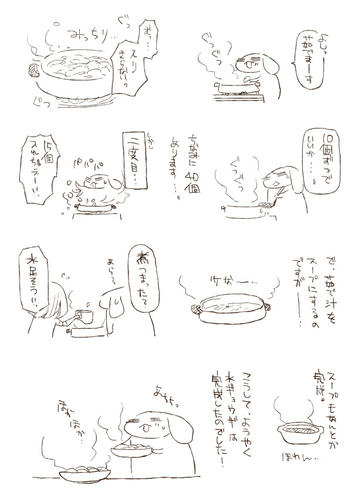 よしっ
茹でまーす
ぐつ
ぐつ
みっちり…
10個ずつで
いいか…
ぐつぐつ
ちなみに40個
あります…。
しかし
二度目…
パパパパ
15個
入れちゃえー!!
で、茹で汁を
スープにするの
ですが――
あら〜
水足そうい。
スープもなんとか
完成。
こうして、ようやく
水ギョウザが
完成したのでした!
ほか
ほか…